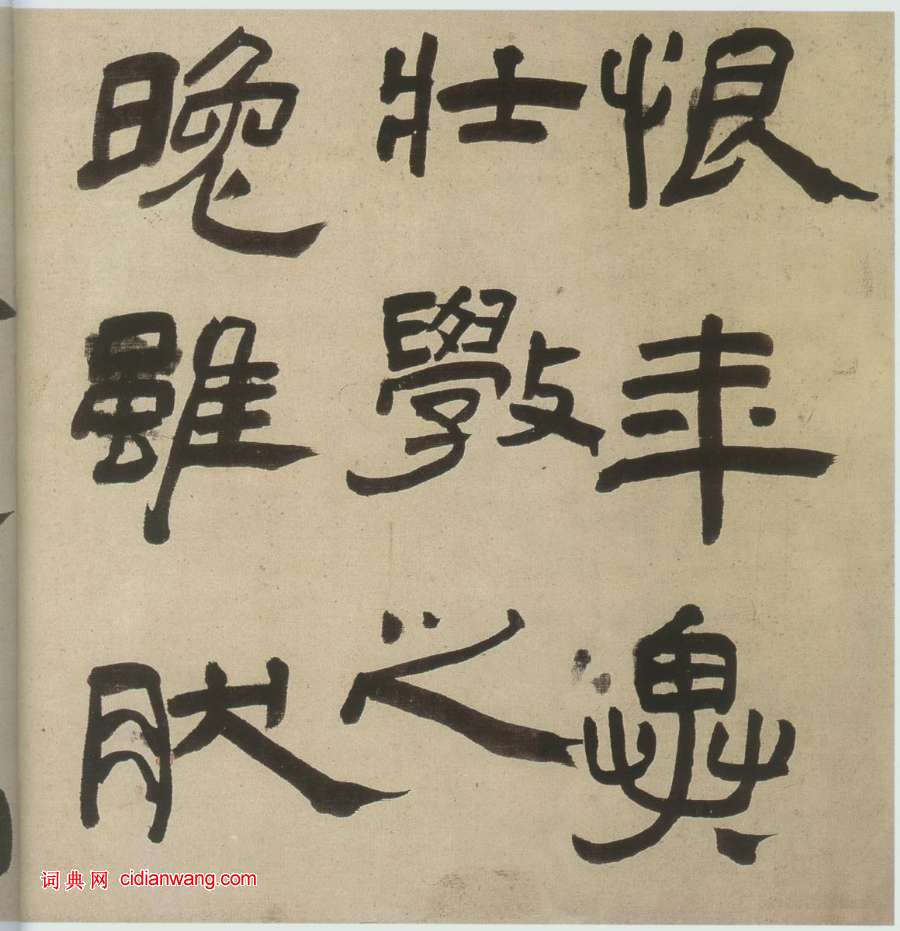 恨年異
壯斆之
晚雖肰
词典网 cidianwang.com